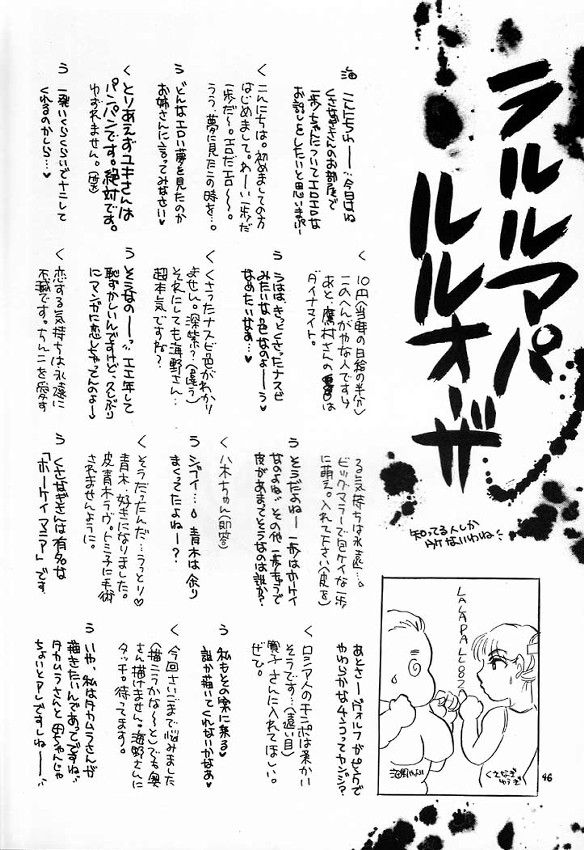 ラルルマパ
ルルオーザ
知ってる人しか
ウケないわね
海 こんにちわー…今日はね
くさなぎさんのお部屋で
一歩ちゃんについてエロエロな
お話しをしたいと思いまぁす
く こんにちは。初めましての方
はじめまして。わーい一歩だ
一歩だ〜。エロだエロ〜。
うう、夢に見たこの時を…。
う どんなエロい夢を見たのか
お姉さんに言ってみなさい♥
く とりあえずユキさんは
パンパンです。絶対です。
ゆずれません。
う 一発いくらくらいでナニして
くれるのかしら…♥
く 10円（当時の日給の半分）
このへんがやな人ですけ
あと、鷹村さんの
ダイナマイト。
う うはは、きっとくさったナスビ
みたいな色なのよーう
なめたいなぁ…♥
く くさったナスビ色がわかり
ません。深緑？（違う）
それにしても海野さん…
超本気ですね？
う そうなのー…エエ年して
恥ずかしいんですけど、久しぶり
にマンガに恋しちゃってんのよ〜♥
く 恋する気持ちは永遠に
不滅です。ちんこを愛す
る気持ちは永遠…。
ビッグマラーで包ケイな一歩
に萌え。入れて下さい（皮を）
う そうだよねー一歩はホーケイ
なのよね…その他一歩キャラで
皮があまってそうなのは誰か？
く 八木ちゃん（即答）
う ジョイー…青木は余り
まくってたよねー？
く そうだったんだ…うっとり♥
青木…好きになりました。
皮青木ラヴ。トミ子に手術
されませんように。
う くさなぎさんは有名な
「ホーケイマニア」です
あとさーヴォルフがピンクで
やわらかな4さつってカンジ？
く ロシア人のチンポは柔かい
そうです…（遠い目）
間子さんに入れてほしい。
ぜひ。
う 私もその案に乗る♥
誰か描いてくれないかなぁ♥
く 今回さいごまで悩みました
（描こうかな〜と）でも奥
さん描けません。海野さんに
タッチ。待ってます。
う いや、私はタカムラさんが
描きたいんであってですね…
タカムラさんと母ちゃんじゃ
ちょいとアレですしねー…
LALAPALLOOZ
海野やよい
くさなぎ
ゆうぎ
46